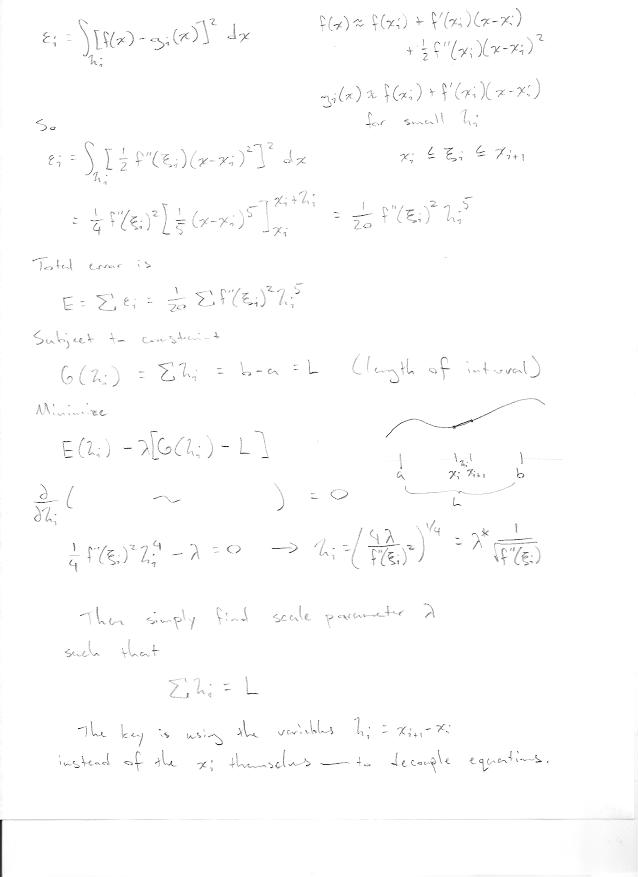 εᵢ = ∫_hᵢ [f(x) - gᵢ(x)]² dx
f(x) ≈ f(xᵢ) + f'(xᵢ)(x-xᵢ)
+ ½ f''(xᵢ)(x-xᵢ)²
gᵢ(x) ≈ f(xᵢ) + f'(xᵢ)(x-xᵢ)
for small hᵢ
So
εᵢ = ∫_hᵢ [½ f''(ξᵢ)(x-xᵢ)²]² dx
xᵢ ≤ ξᵢ ≤ xᵢ₊₁
= ¼ f''(ξᵢ)² [⅕ (x-xᵢ)⁵]_xᵢ^xᵢ+hᵢ = 1/20 f''(ξᵢ)² hᵢ⁵
Total error is
E = Σ εᵢ = 1/20 Σ f''(ξᵢ)² hᵢ⁵
Subject to constraint
G(hᵢ) = Σhᵢ = b-a = L (length of interval)
Minimize
E(hᵢ) - λ[G(hᵢ) - L]
a xᵢ hᵢ xᵢ₊₁ b
L
∂/∂hᵢ ( ~ ) = 0
¼ f''(ξᵢ)² hᵢ⁴ - λ = 0 → hᵢ = (4λ/f''(ξᵢ)²)^1/4 = λ* 1/√f''(ξᵢ)
Then simply find scale parameter λ
such that
Σhᵢ = L
The key is using the variables hᵢ = xᵢ₊₁-xᵢ
instead of the xᵢ themselves — to decouple equations.